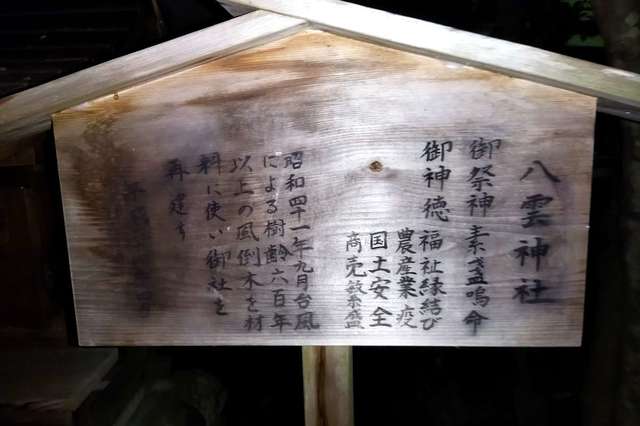 八雲神社
御祭神 素盞嗚命
御神徳 福祉縁結び
農産業 疫
国土安全
商売繁盛
昭和四十一年九月台風
による樹齢六百年
以上の風倒木を材
料に使い御社を
再建す